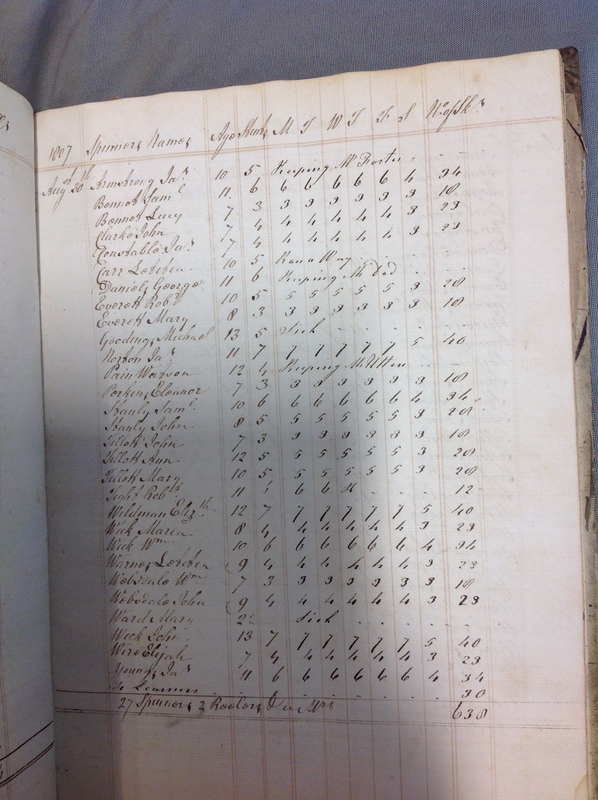 1807 Spinners Names Age Skeins M T W T F S No of Sks
Augst 30th Armstrong Jas 10 5 Keeping Mr
Bonnet Saml 11 6 6 6 6 6 6 4 34
Bonnet Lucy 7 3 3 3 3 3 3 3 18
Clarke John 7 4 4 4 4 4 4 3 23
Constable Jas 7 4 4 4 4 4 4 3 23
Carr Letitia 10 5 Ran a Way
Daniels George 11 6 Keeping
Everett Robt 10 5 5 5 5 5 5 3 28
Everett Mary 8 3 3 3 3 3 3 3 18
Gooding Michael 13 5 Sick
Norton Jas 11 7 7 7 7 7 7 5 40
Pain Watson 12 4 Keeping
Perkins Eleanor 7 3 3 3 3 3 3 3 18
Stanly Saml 10 6 6 6 6 6 6 4 34
Stanly John 8 5 5 5 5 5 5 3 28
Tillott John 7 3 3 3 3 3 3 3 18
Tillott Ann 12 5 5 5 5 5 5 3 28
Tillott Mary 10 5 5 5 5 5 5 3 28
Robt 11 6 6 12
Wildman Elizth 12 7 7 7 7 7 7 5 40
Wick Maria 8 4 4 4 4 4 4 3 23
Wick Wm 10 6 6 6 6 6 6 4 34
Warnes Letitia 9 4 4 4 4 4 4 3 23
Websdale Wm 7 3 3 3 3 3 3 3 18
Websdale John 9 4 4 4 4 4 4 3 23
Ward Mary 22 Sick
Wick John 13 7 7 7 7 7 7 5 40
Wire Elijah 7 4 4 4 4 4 4 3 23
Young Jas 11 6 6 6 6 6 6 4 34
Learners 30
27 Spinners 2 Reelers 638